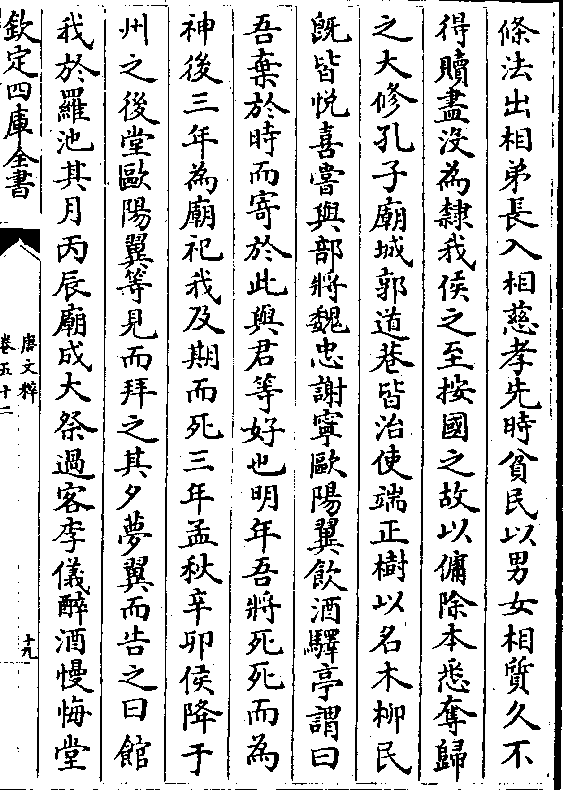 條法出相弟長入相慈孝先時貧民以男女相質久不
得贖盡没為隸我侯之至按國之故以傭除本悉奪歸
之大修孔子廟城郭道巷皆治使端正樹以名木柳民
既皆悅喜嘗與部將魏忠謝寧歐陽翼飲酒驛亭謂曰
吾棄於時而寄於此與君等好也明年吾將死死而為
神後三年為廟祀我及期而死三年孟秋辛卯侯降于
州之後堂歐陽翼等見而拜之其夕夢翼而告之曰館
我於羅池其月丙辰廟成大祭過客李儀醉酒慢侮堂
欽定四庫全書
唐文粹
卷五十二
十九